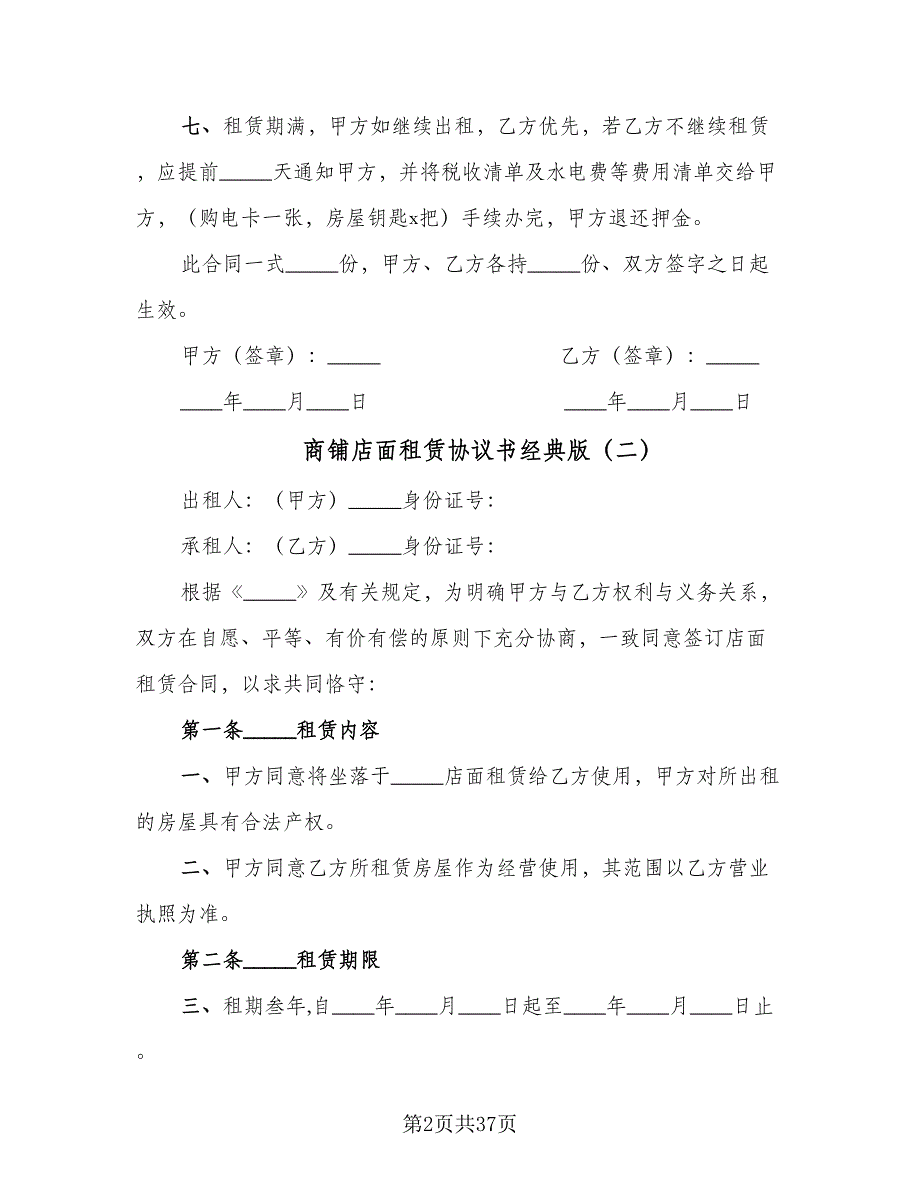 七、租赁期满，甲方如继续出租，乙方优先，若乙方不继续租赁
，应提前_____天通知甲方，并将税收清单及水电费等费用清单交给甲
方，（购电卡一张，房屋钥匙x把）手续办完，甲方退还押金。
此合同一式_____份，甲方、乙方各持_____份、双方签字之日起
生效。
甲方（签章）：_____ 乙方（签章）：_____
____年____月____日 ____年____月____日
商铺店面租赁协议书经典版（二）
出租人：（甲方）_____身份证号：
承租人：（乙方）_____身份证号：
根据《_____》及有关规定，为明确甲方与乙方权利与义务关系，
双方在自愿、平等、有价有偿的原则下充分协商，一致同意签订店面
租赁合同，以求共同恪守：
第一条_____租赁内容
一、甲方同意将坐落于_____店面租赁给乙方使用，甲方对所出租
的房屋具有合法产权。
二、甲方同意乙方所租赁房屋作为经营使用，其范围以乙方营业
执照为准。
第二条_____租赁期限
三、租期叁年,自____年____月____日起至____年____月____日止
。
第2页共37页